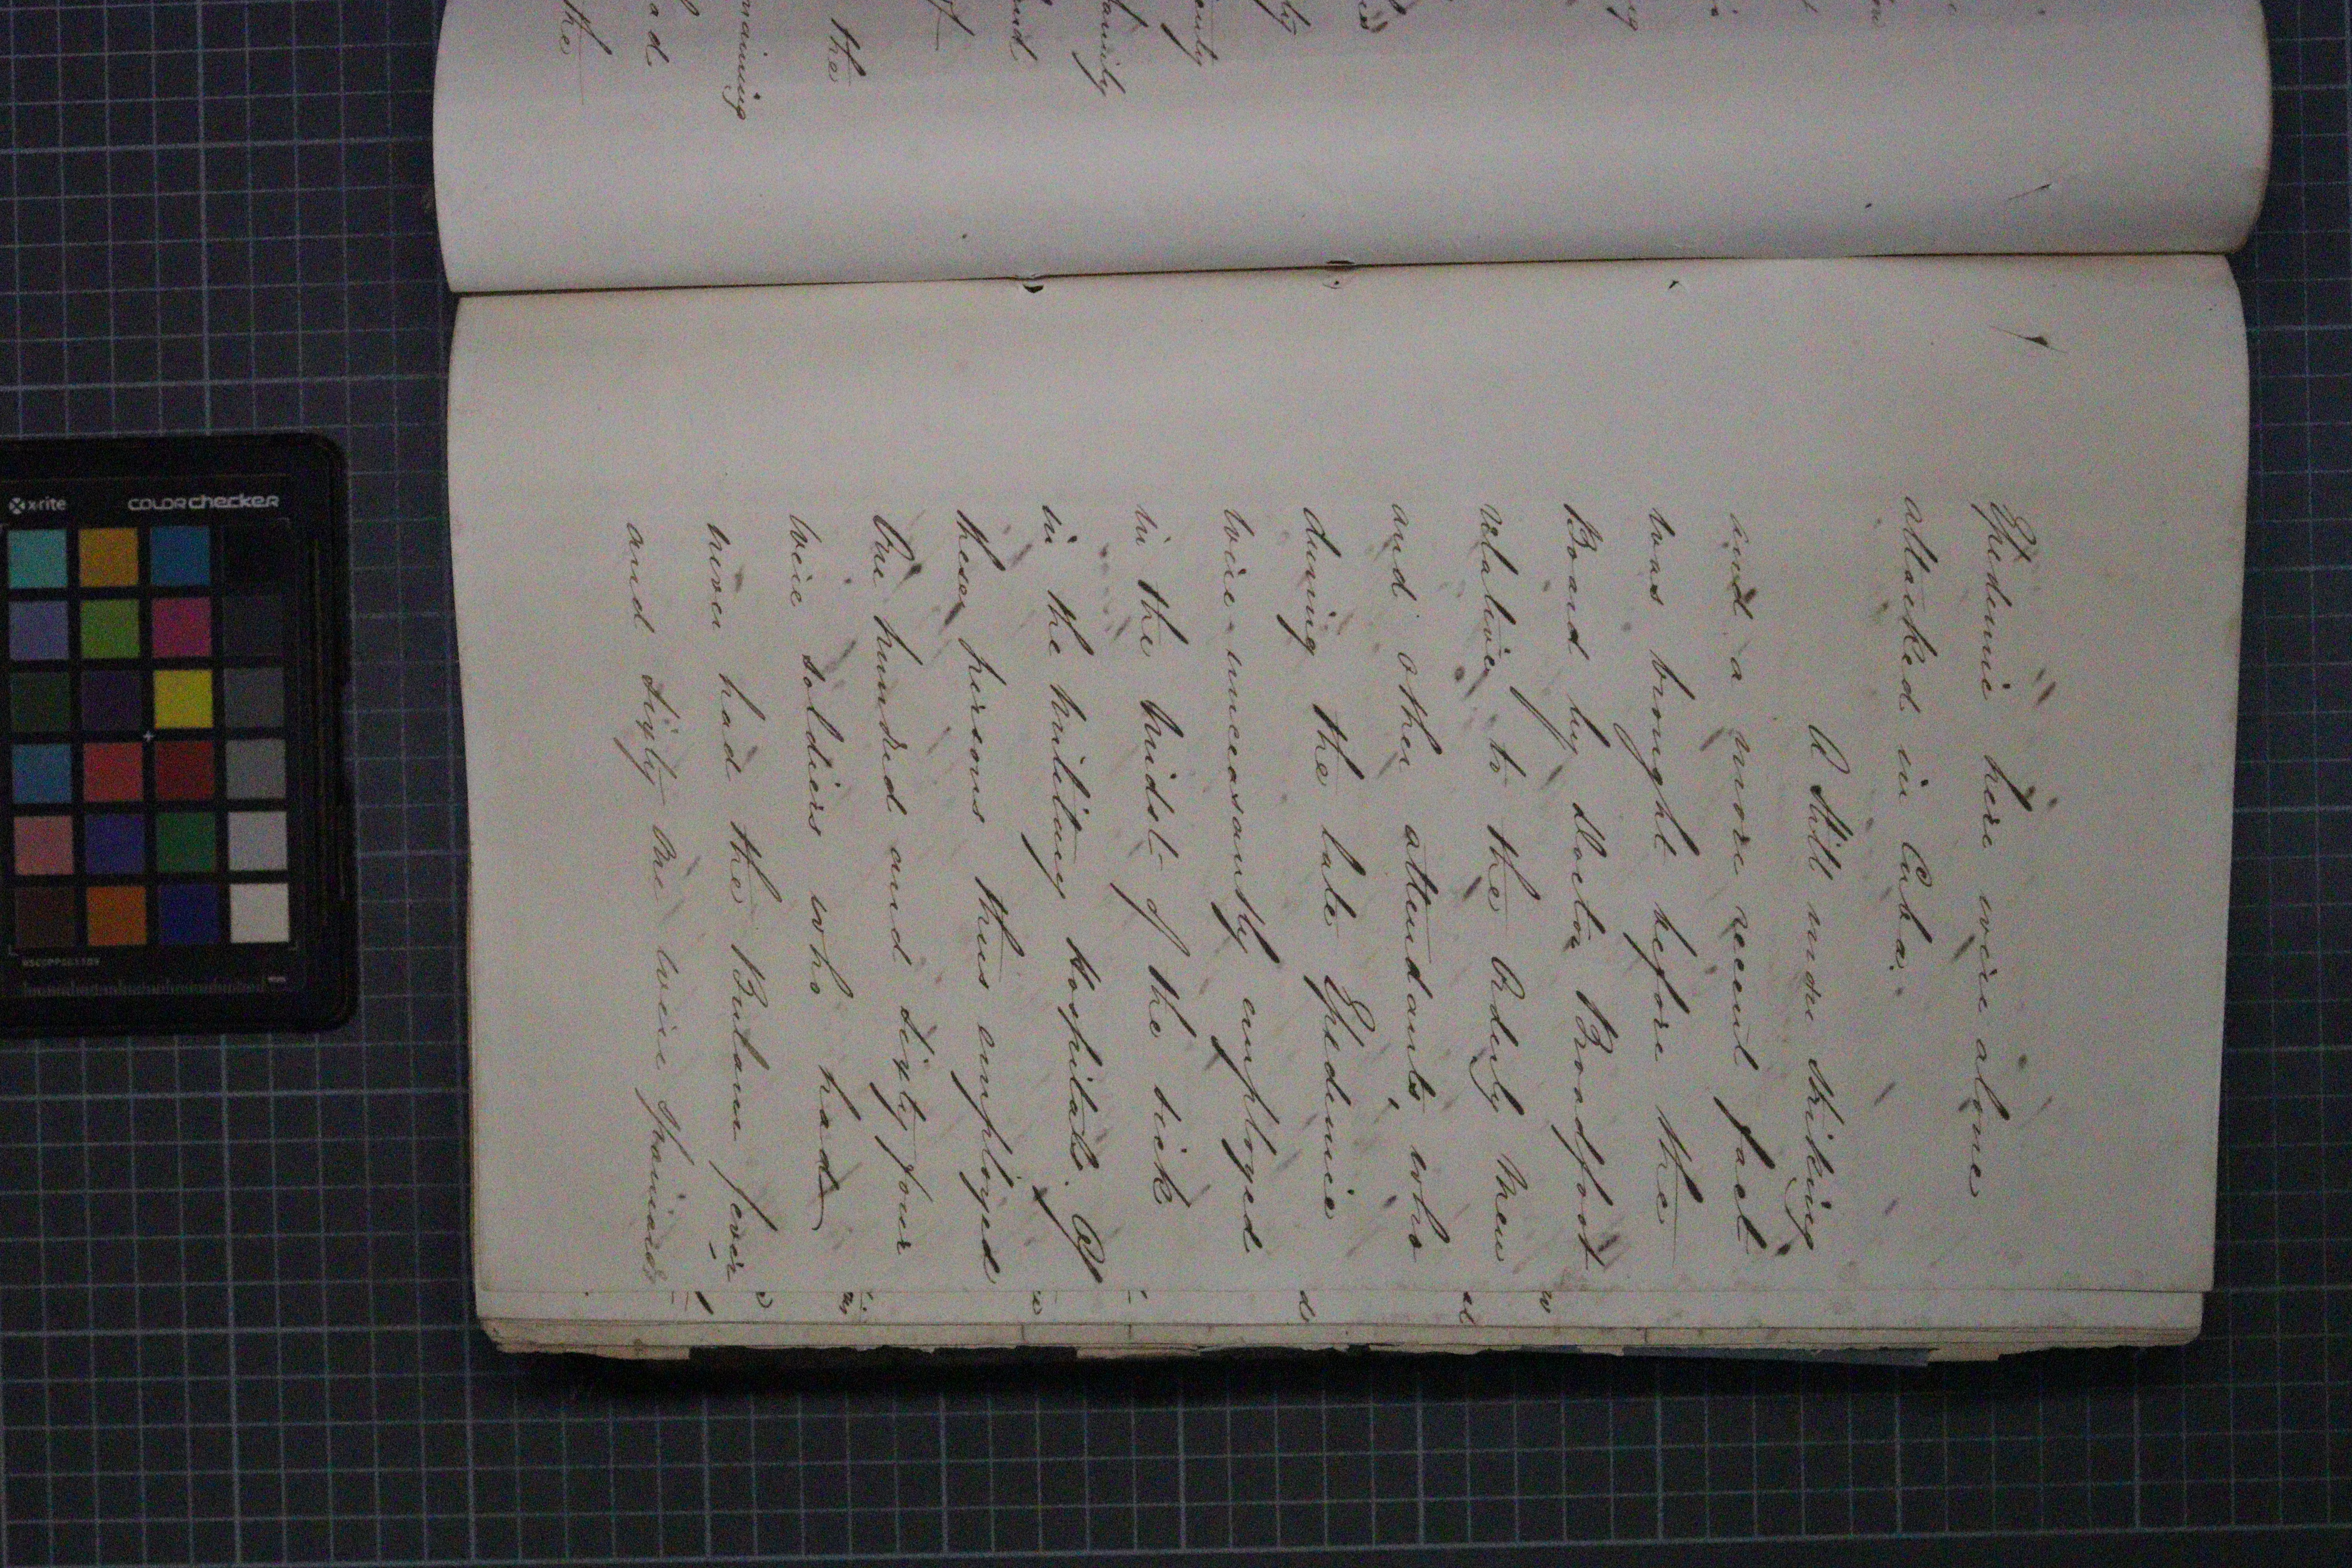 Epidemic here were alone
attacked in Cuba.
A still more striking
and a more recent fact
was brought before the
Board by Doctor Broadfoot
relative to the Orderly Men
and other attendants, who
during the late Epidemic
were unceasantly employed
in the midst of the sick
in the military hospitals. Of
these persons thus employed
One hundred and sixty four
were soldiers who had
never had the Bulam fever
and sixty one were Spaniards
the
ad
maining
the
of
and
family
ently
xrite
colorchecker